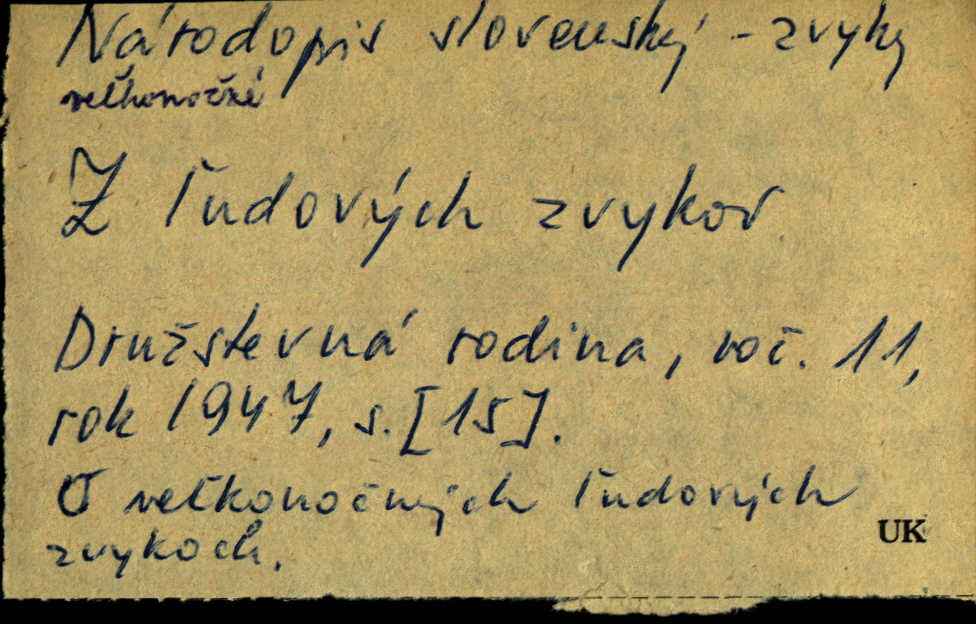 Národopis slovenský - zvyky
veľkonočné
Z ľudových zvykov
Družstevná rodina, roč. 11,
rok 1947, s. [15].
O veľkonočných ľudových
zvykoch.
UK